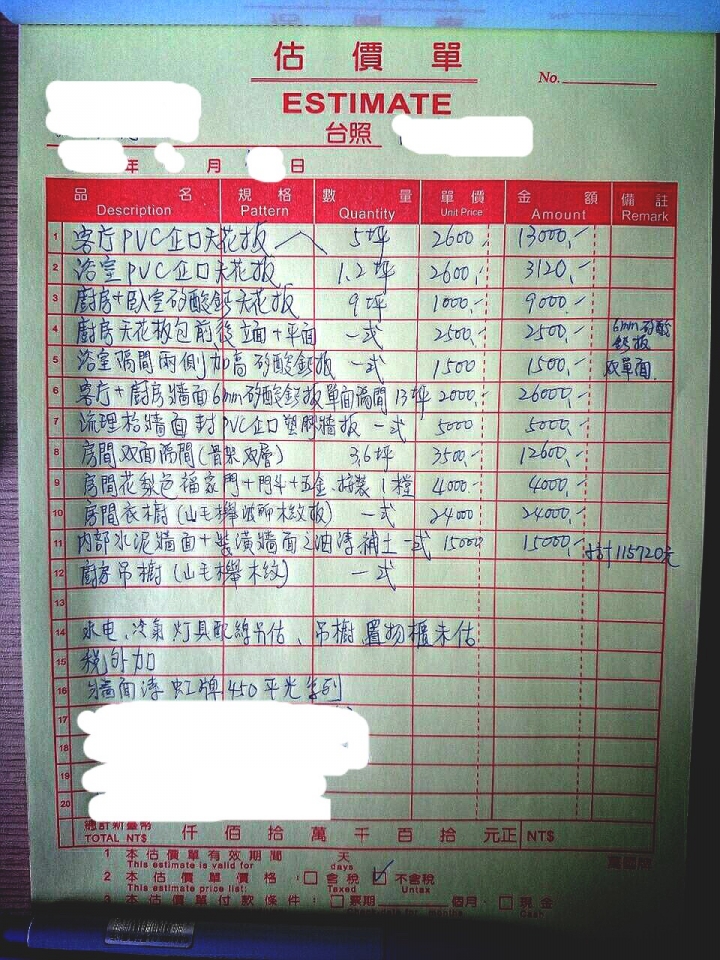 估價單
No.
ESTIMATE
台照
年 月 日
品名 規格 數量 單價 金額 備註
Description Pattern Quantity Unit Price Amount Remark
1 客厅PVC企口天花板 5坪 2600.- 13000.-
2 浴室PVC企口天花板 1.2坪 2600.- 3120.-
3 廚房+臥室矽酸鈣天花板 9坪 1000.- 9000.-
4 廚房天花板包前後立面+平面 一式 2500.- 2500.- 6mm矽酸鈣板
5 浴室隔間兩側加高矽酸鈣板 一式 1500 1500.- 双單面
6 客厅+廚房墻面6mm矽酸鈣板單面隔間 13坪 2000.- 26000.-
7 流理枱墻面封PVC企口塑膠墻板 一式 5000 5000.-
8 房間双面隔間(骨架双層) 3.6坪 3500.- 12600.-
9 房間花梨色福家門+門斗+五金.按裝 1樘 4000.- 4000.-
10 房間衣樹(山毛櫸波聊木紋板) 一式 24000 24000.-
11 內部水泥墻面+裝潢墻面之油漆補土 一式 15000 15000.- 合計115720元
12 廚房吊樹(山毛櫸木紋) 一式
13
14 水电、冷氣灯具配線另估、吊樹置物櫃未估
15 稅外加
16 墻面漆虹牌450平光系列
17
18
19
20
總計新臺幣
TOTAL NT$ 仟 佰 拾 萬 千 百 拾 元正 NT$
1 本估價單有效期間 天
This estimate is valid for days
2 本估價單價格：□含稅 ☑不含稅
This estimate price list: Taxed Untax
3 本估價單付款條件：□票期 個月．□現金
Check date for months Cash